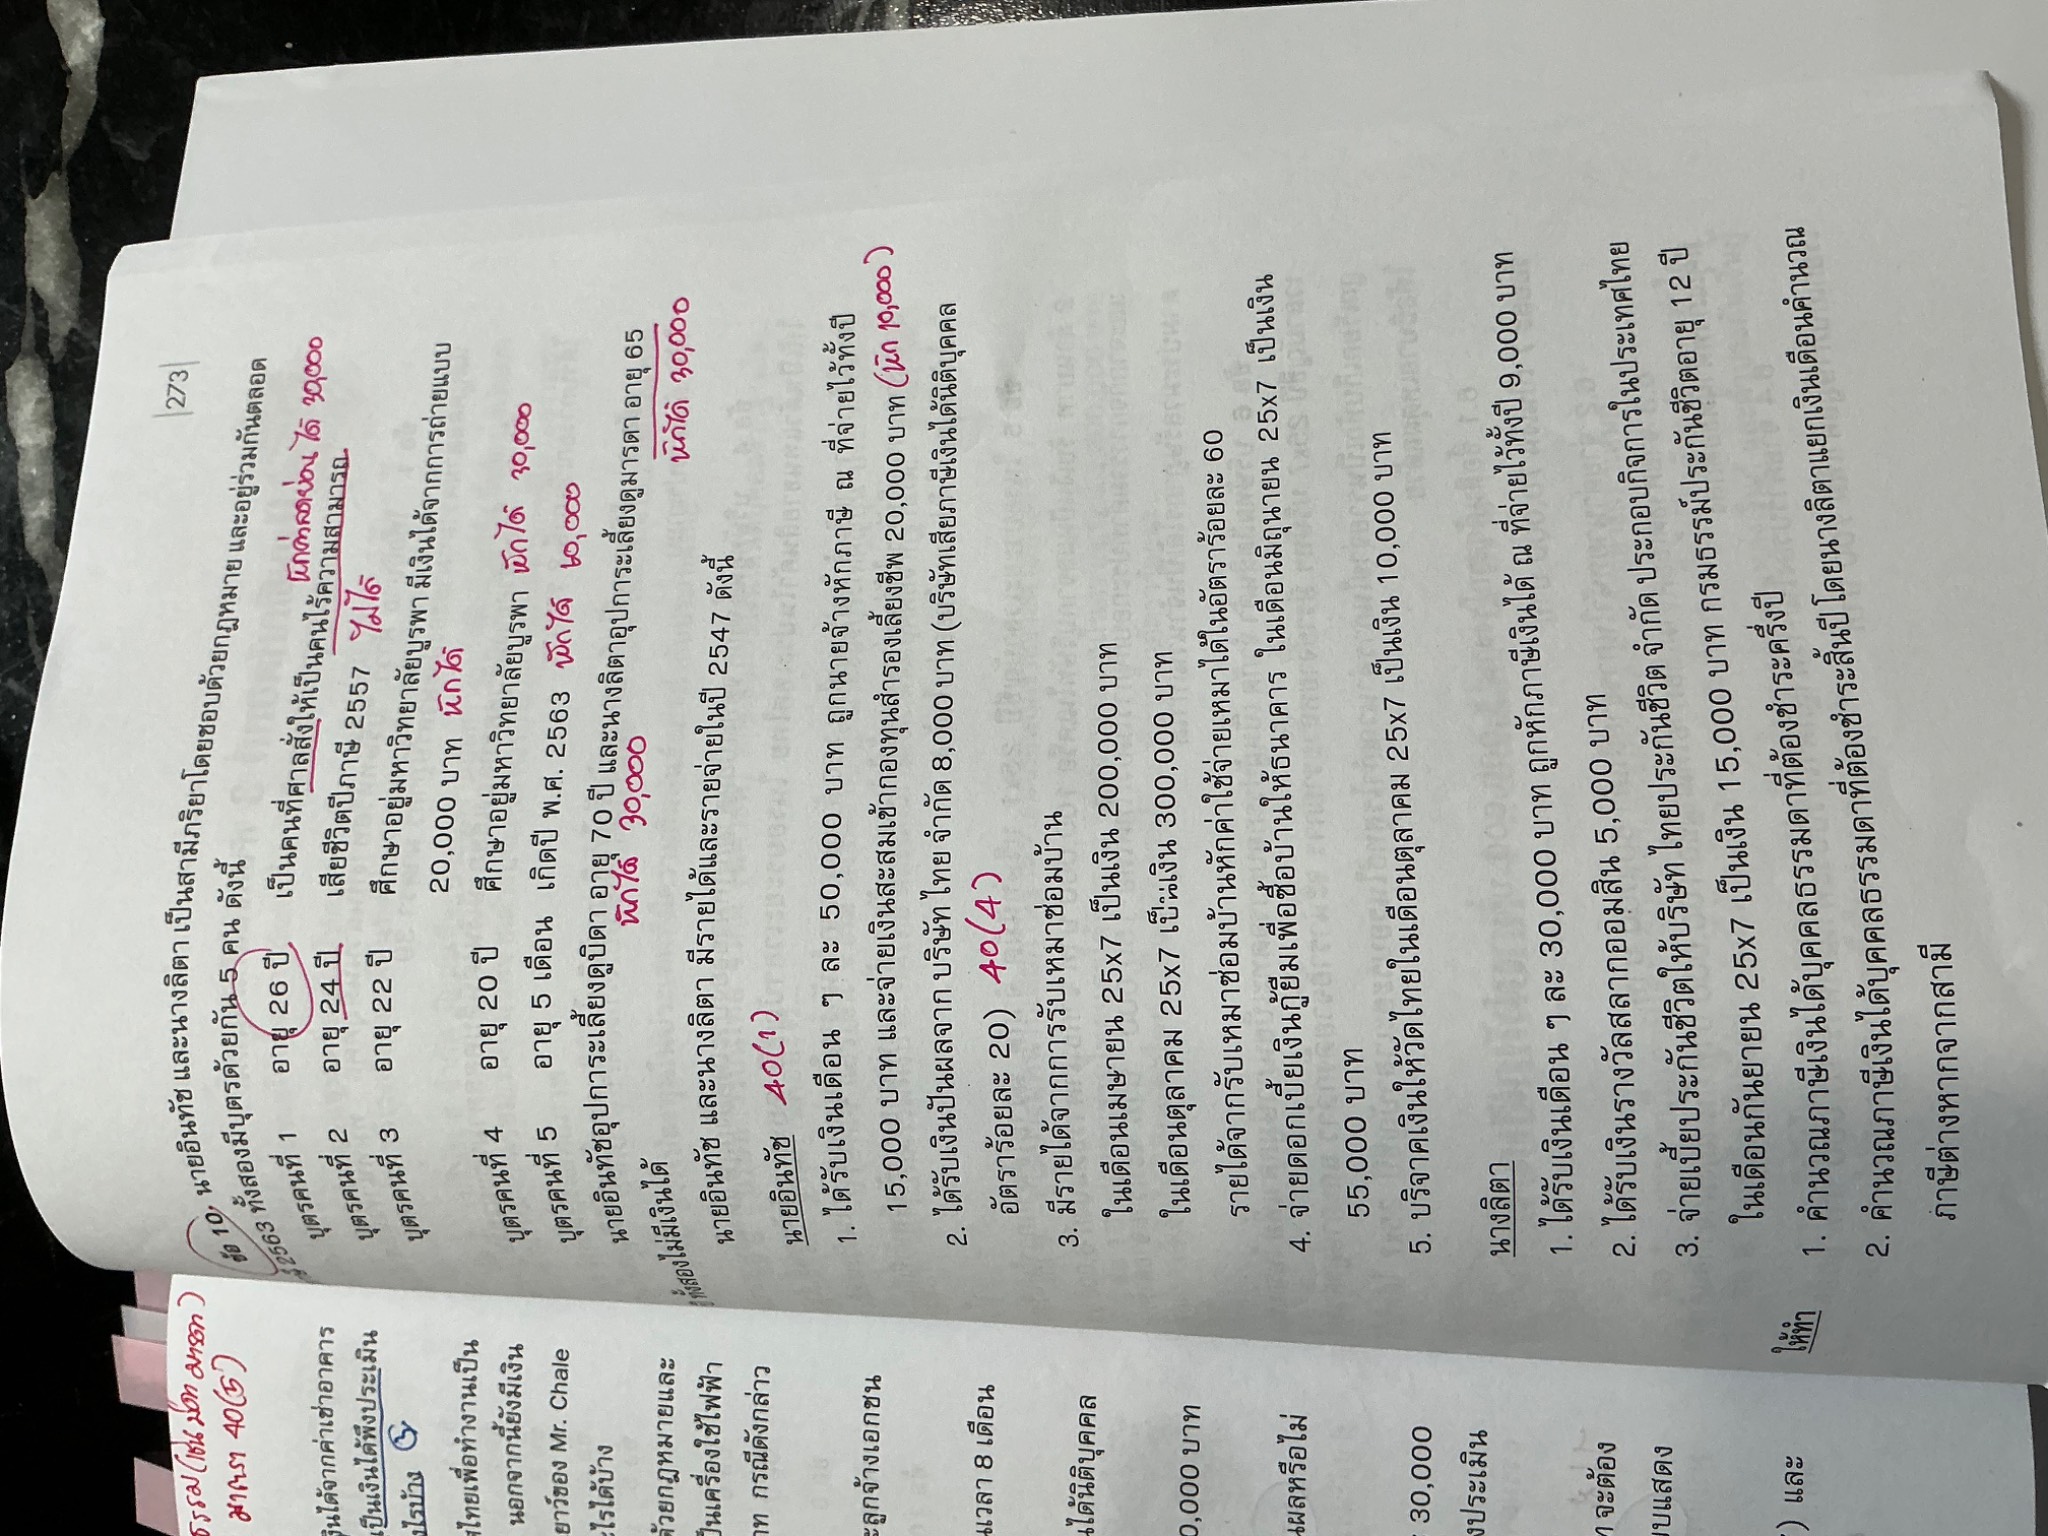 273
ข้อ 10, นายอินทัช และนางลิตา เป็นสามีภริยาโดยชอบด้วยกฎหมาย และอยู่ร่วมกันตลอด
2563 ทั้งสองมีบุตรด้วยกัน 5 คน ดังนี้ หักค่าลดหย่อนได้ 30,000
บุตรคนที่ 1 อายุ 26 ปี เป็นคนที่ศาลสั่งให้เป็นคนไร้ความสามารถ
บุตรคนที่ 2 อายุ 24 ปี เสียชีวิตปีภาษี 2557 ไม่ได้
บุตรคนที่ 3 อายุ 22 ปี ศึกษาอยู่มหาวิทยาลัยบูรพา มีเงินได้จากการถ่ายแบบ
20,000 บาท หักได้
บุตรคนที่ 4 อายุ 20 ปี ศึกษาอยู่มหาวิทยาลัยบูรพา หักได้ 30,000
บุตรคนที่ 5 อายุ 5 เดือน เกิดปี พ.ศ. 2563 หักได้ 60,000
นายอินทัชอุปการะเลี้ยงดูบิดา อายุ 70 ปี และนางลิตาอุปการะเลี้ยงดูมารดา อายุ 65
หักได้ 30,000 หักได้ 30,000
ทั้งสองไม่มีเงินได้
นายอินทัช และนางลิตา มีรายได้และรายจ่ายในปี 2547 ดังนี้
นายอินทัช 40(1)
1. ได้รับเงินเดือน ๆ ละ 50,000 บาท ถูกนายจ้างหักภาษี ณ ที่จ่ายไว้ทั้งปี
15,000 บาท และจ่ายเงินสะสมเข้ากองทุนสำรองเลี้ยงชีพ 20,000 บาท (หัก 10,000)
2. ได้รับเงินปันผลจาก บริษัท ไทย จำกัด 8,000 บาท (บริษัทเสียภาษีเงินได้นิติบุคคล
อัตราร้อยละ 20) 40(4)
3. มีรายได้จากการรับเหมาซ่อมบ้าน
ในเดือนเมษายน 25x7 เป็นเงิน 200,000 บาท
ในเดือนตุลาคม 25x7 เป็นเงิน 300,000 บาท
รายได้จากรับเหมาซ่อมบ้านหักค่าใช้จ่ายเหมาได้ในอัตราร้อยละ 60
4. จ่ายดอกเบี้ยเงินกู้ยืมเพื่อซื้อบ้านให้ธนาคาร ในเดือนมิถุนายน 25x7 เป็นเงิน
55,000 บาท
5. บริจาคเงินให้วัดไทยในเดือนตุลาคม 25x7 เป็นเงิน 10,000 บาท
นางลิตา
1. ได้รับเงินเดือน ๆ ละ 30,000 บาท ถูกหักภาษีเงินได้ ณ ที่จ่ายไว้ทั้งปี 9,000 บาท
2. ได้รับเงินรางวัลสลากออมสิน 5,000 บาท
3. จ่ายเบี้ยประกันชีวิตให้บริษัท ไทยประกันชีวิต จำกัด ประกอบกิจการในประเทศไทย
ในเดือนกันยายน 25x7 เป็นเงิน 15,000 บาท กรมธรรม์ประกันชีวิตอายุ 12 ปี
ให้ทำ 1. คำนวณภาษีเงินได้บุคคลธรรมดาที่ต้องชำระครึ่งปี
2. คำนวณภาษีเงินได้บุคคลธรรมดาที่ต้องชำระสิ้นปี โดยนางลิตาแยกเงินเดือนคำนวณ
ภาษีต่างหากจากสามี
มาตรา 40(5)
เงินได้จากค่าเช่าอาคาร
เป็นเงินได้พึงประเมิน
ไรบ้าง
ไทยเพื่อทำงานเป็น
นอกจากนี้ยังมีเงิน
ของ Mr. Chale
ะไรได้บ้าง
ด้วยกฎหมายและ
เป็นเครื่องใช้ไฟฟ้า
าท กรณีดังกล่าว
ะลูกจ้างเอกชน
นเวลา 8 เดือน
นได้นิติบุคคล
0,000 บาท
นผลหรือไม่
30,000
งประเมิน
จะต้อง
บบแสดง
) และ